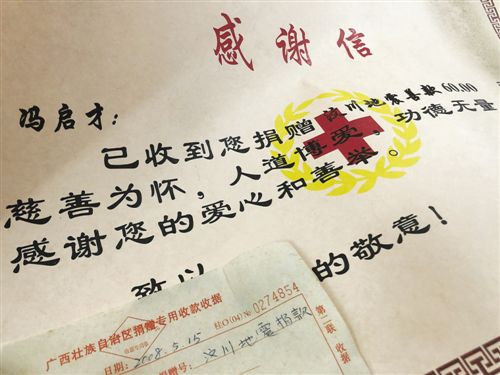 感谢信
冯启才：
已收到您捐赠汶川地震善款60.00
慈善为怀，人道博爱，功德无量
感谢您的爱心和善举。
致以
的敬意！
广西壮族自治区捐赠专用收款收据
桂O(04)№0274854
日期：2008.5.15
捐赠号：汶川地震捐款
第二联
收据